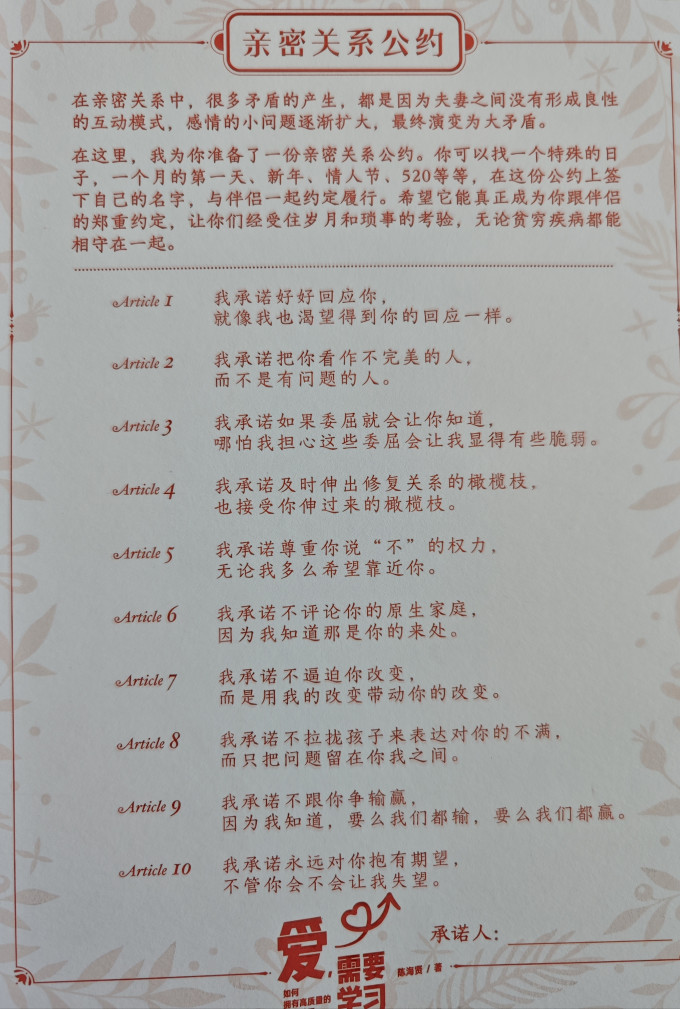 亲密关系公约
在亲密关系中，很多矛盾的产生，都是因为夫妻之间没有形成良性
的互动模式，感情的小问题逐渐扩大，最终演变为大矛盾。
在这里，我为你准备了一份亲密关系公约。你可以找一个特殊的日
子，一个月的第一天、新年、情人节、520等等，在这份公约上签
下自己的名字，与伴侣一起约定履行。希望它能真正成为你跟伴侣
的郑重约定，让你们经受住岁月和琐事的考验，无论贫穷疾病都能
相守在一起。
Article 1 我承诺好好回应你，
就像我也渴望得到你的回应一样。
Article 2 我承诺把你看作不完美的人，
而不是有问题的人。
Article 3 我承诺如果委屈就会让你知道，
哪怕我担心这些委屈会让我显得有些脆弱。
Article 4 我承诺及时伸出修复关系的橄榄枝，
也接受你伸过来的橄榄枝。
Article 5 我承诺尊重你说“不”的权力，
无论我多么希望靠近你。
Article 6 我承诺不评论你的原生家庭，
因为我知道那是你的来处。
Article 7 我承诺不逼迫你改变，
而是用我的改变带动你的改变。
Article 8 我承诺不拉拢孩子来表达对你的不满，
而只把问题留在你我之间。
Article 9 我承诺不跟你争输赢，
因为我知道，要么我们都输，要么我们都赢。
Article 10 我承诺永远对你抱有期望，
不管你会不会让我失望。
承诺人：
爱，需要
学习
陈海贤 / 著
如何
拥有高质量的